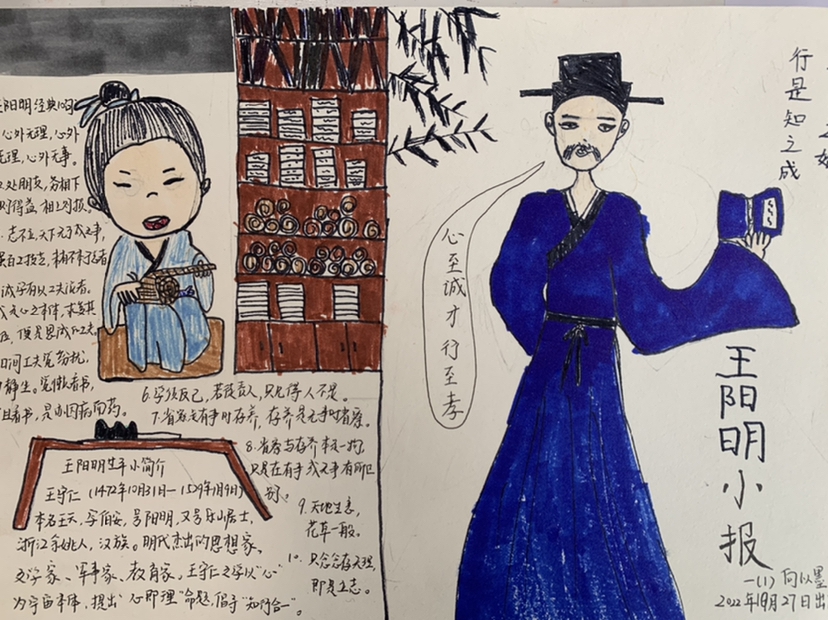 王阳明经典心学
心外无理,心外
无理,心外无事。
2.处朋友,务相下
则得益,相上则损。
志不立,天下无可成之事,
虽百工技艺,未有不本于志者
日间工夫觉纷扰,
静生。觉懒看书,
且看书,是亦因病而药。
6.学须反己,若徒责人,只见得人不是。
7.省察是有事时存养,存养是无事时省察。
8.省察与存养本一物,
只是在有事或无事有所区
别。
9.天地生意,
花草一般。
10.只念念存天理,
即是立志。
王阳明生平小简介
王守仁(1472年10月31日—1529年1月9日)
本名王云,字伯安,号阳明,又号乐山居士,
浙江余姚人,汉族。明代杰出的思想家、
文学家、军事家、教育家。王守仁之学以"心"
为宇宙本体,提出"心即理"命题,倡导"知行合一"。
心至诚才行至孝
行是知之成
王阳明小报
一(1) 向以墨
2022年10月27日出